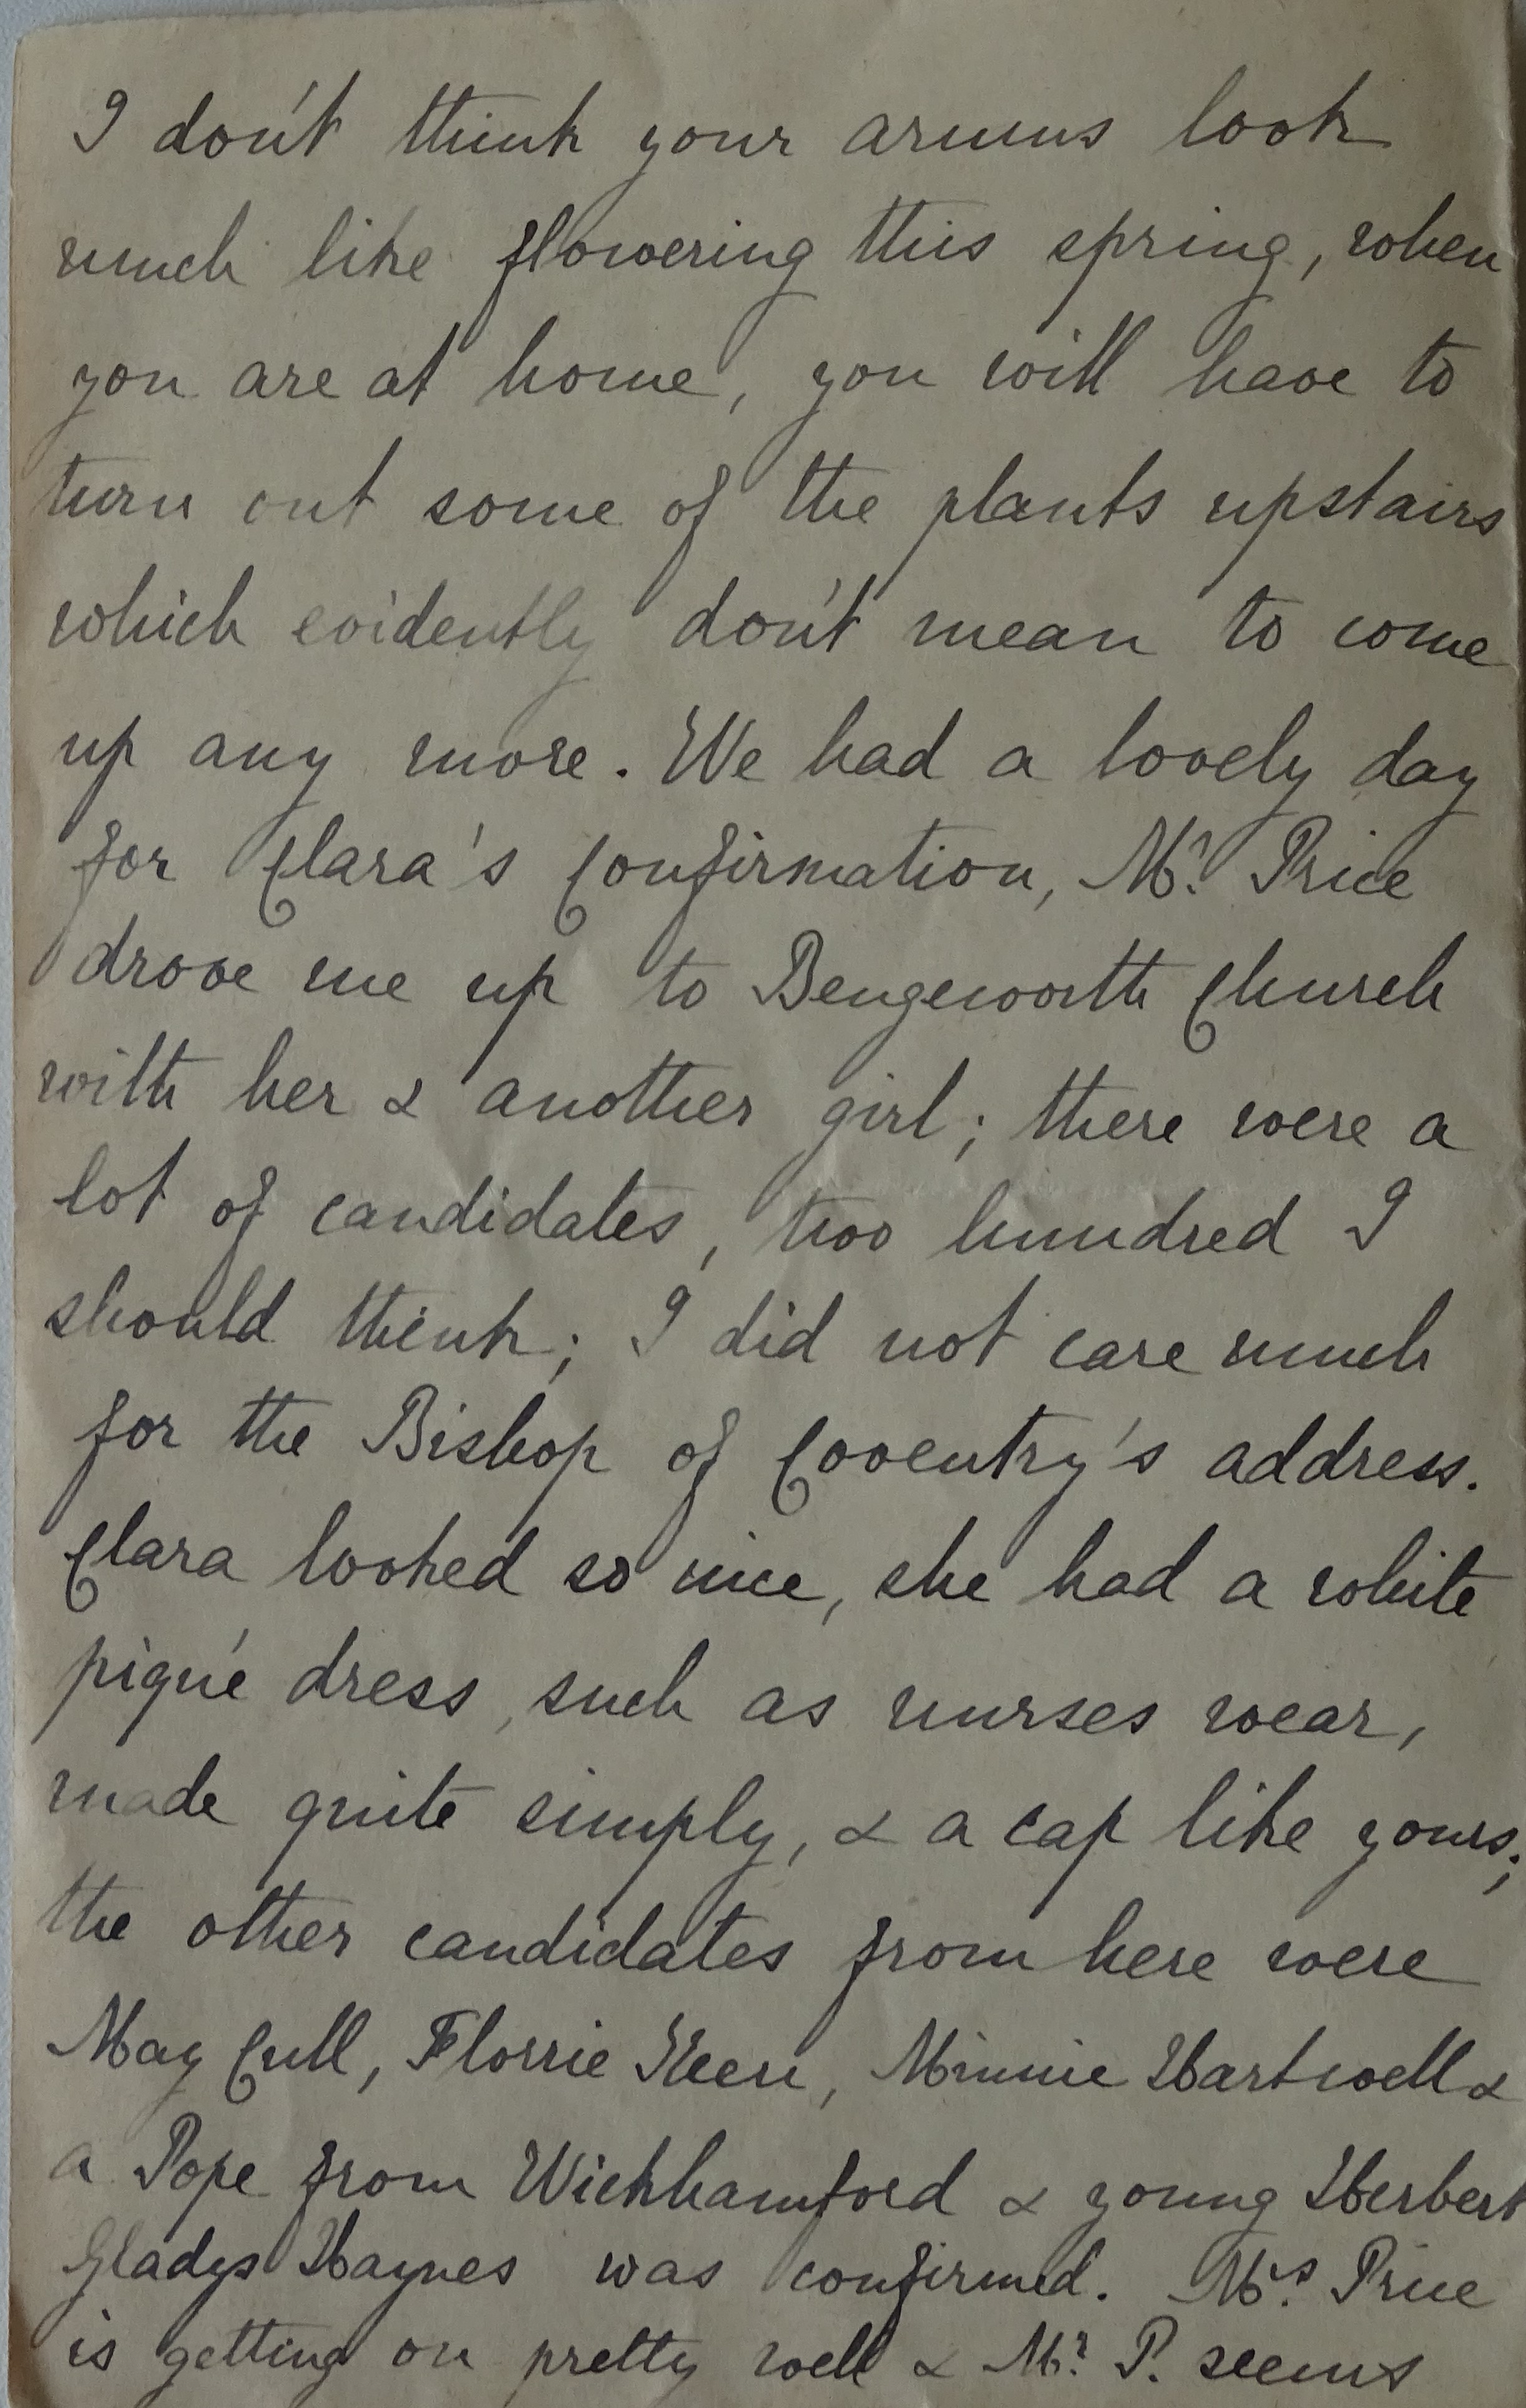 I don't think your arums look
much like flowering this spring, when
you are at home, you will have to
turn out some of the plants upstairs
which evidently don't mean to come
up any more. We had a lovely day
for Clara's Confirmation, Mr. Price
drove me up to Bengeworth Church
with her & another girl; there were a
lot of candidates, two hundred I
should think; I did not care much
for the Bishop of Coventry's address.
Clara looked so nice, she had a white
piqué dress, such as nurses wear,
made quite simply, & a cap like yours;
the other candidates from here were
May Cull, Florrie Keen, Minnie Hartwell &
a Pope from Wickhamford & young Herbert
Gladys Haynes was confirmed. Mrs. Price
is getting on pretty well & Mr. P. seems